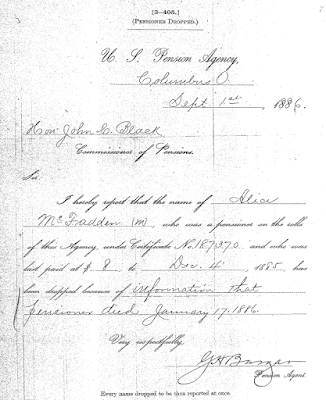 [3–405.]
(PENSIONER DROPPED.)
U. S. Pension Agency,
Columbus O.
Sept 1st, 1886.
Hon John C. Black
Commissioner of Pensions.
Sir:
I hereby report that the name of Alice
McFadden (M), who was a pensioner on the rolls
of this Agency, under Certificate No. 187370 and who was
last paid at $ 8 to Dec. 4 1885, has
been dropped because of information that
pensioner died January 17. 1886.
Very respectfully,
Pension Agent.
Every name dropped to be thus reported at once.